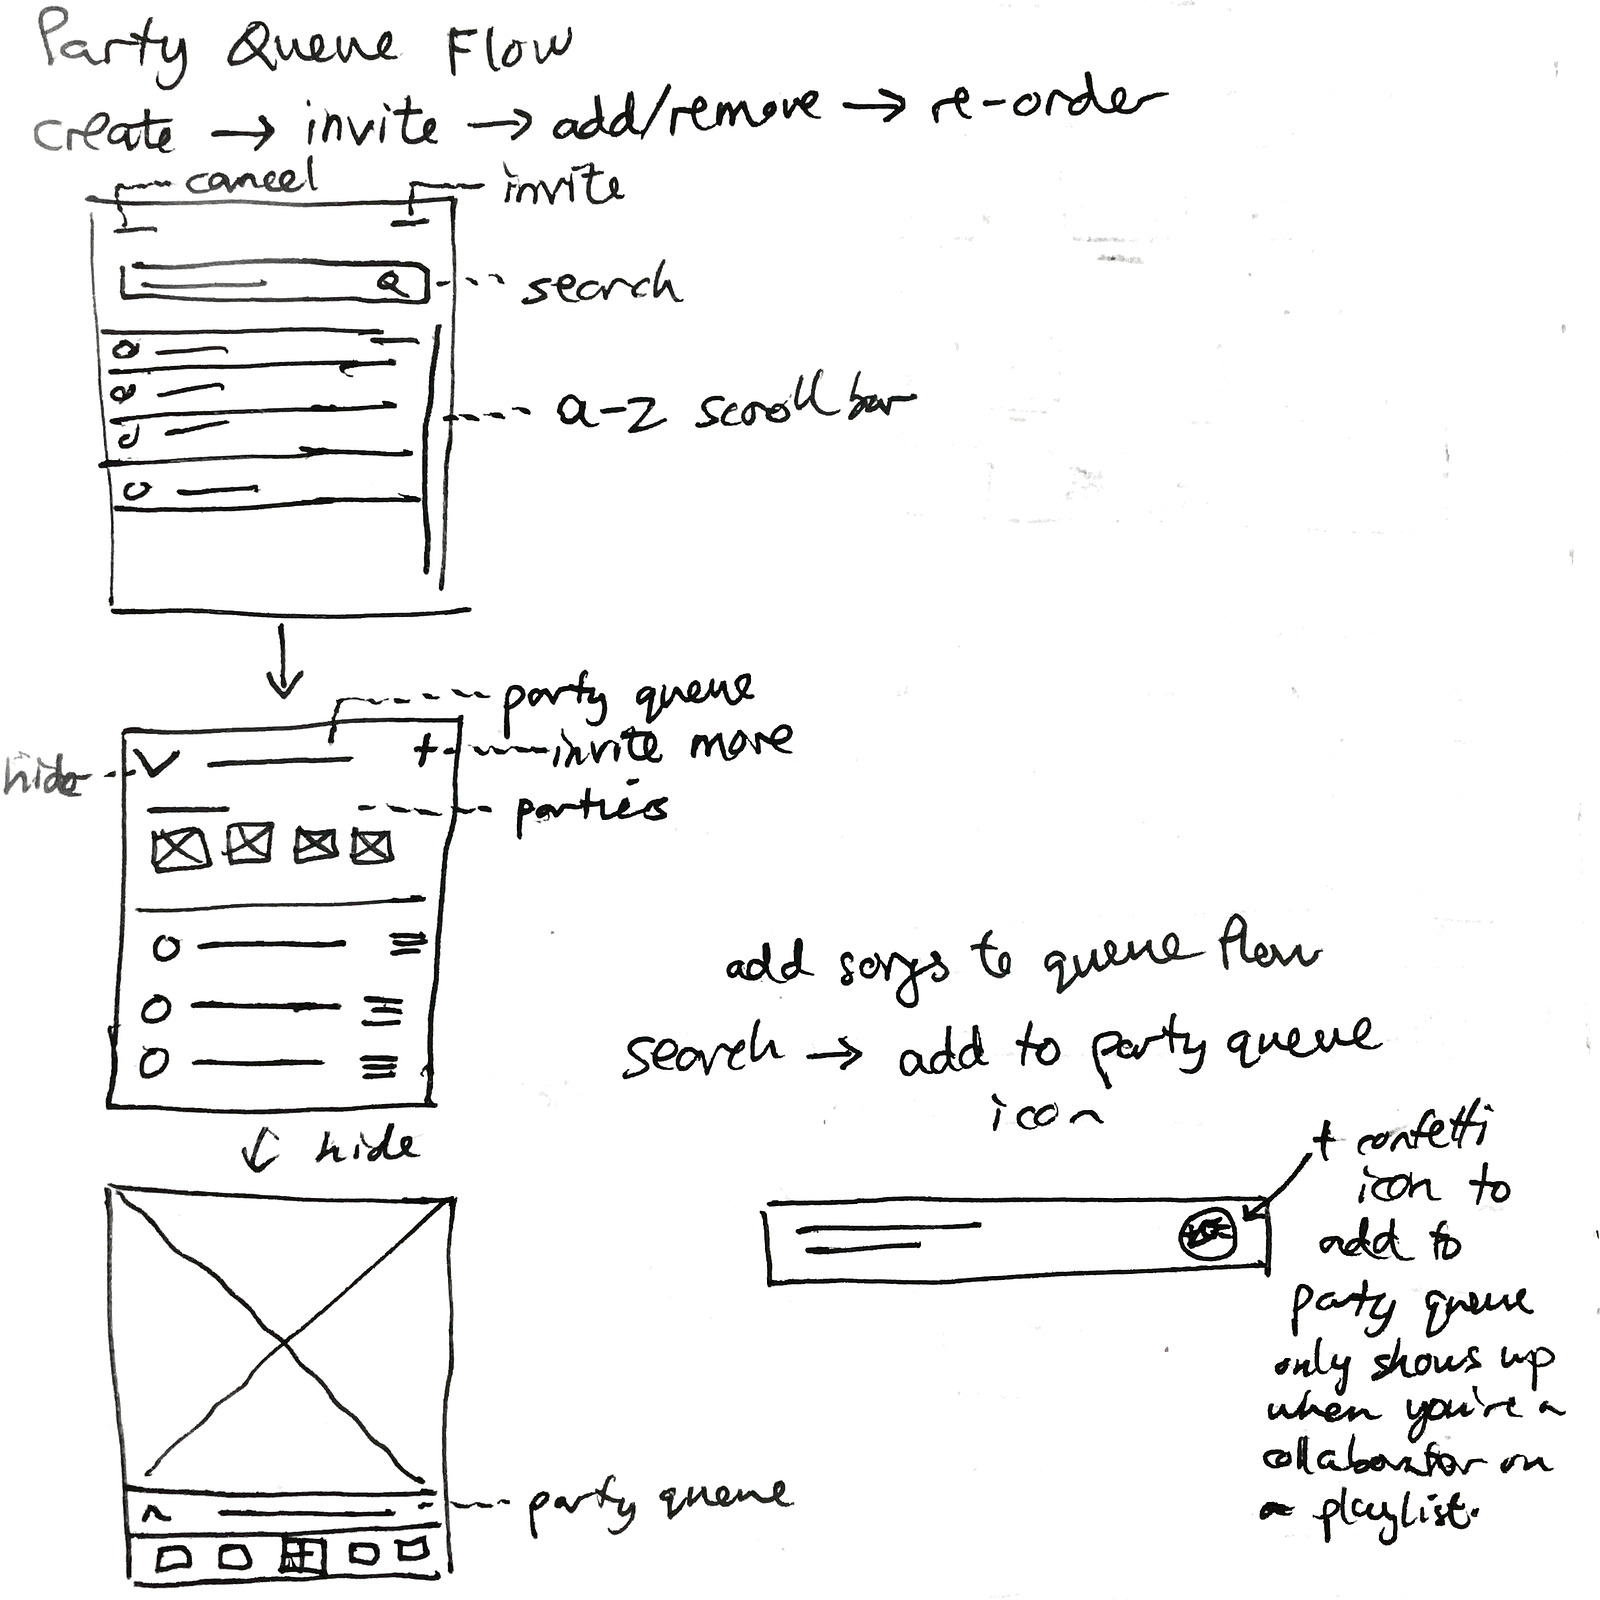 Party Queue Flow
create → invite → add/remove → re-order
cancel
invite
search
a-z scroll bar
party queue
hide
+ invite more
parties
hide
party queue
add songs to queue flow
search → add to party queue
icon
+ confetti
icon to
add to
party queue
only shows up
when you're a
collaborator on
a playlist.